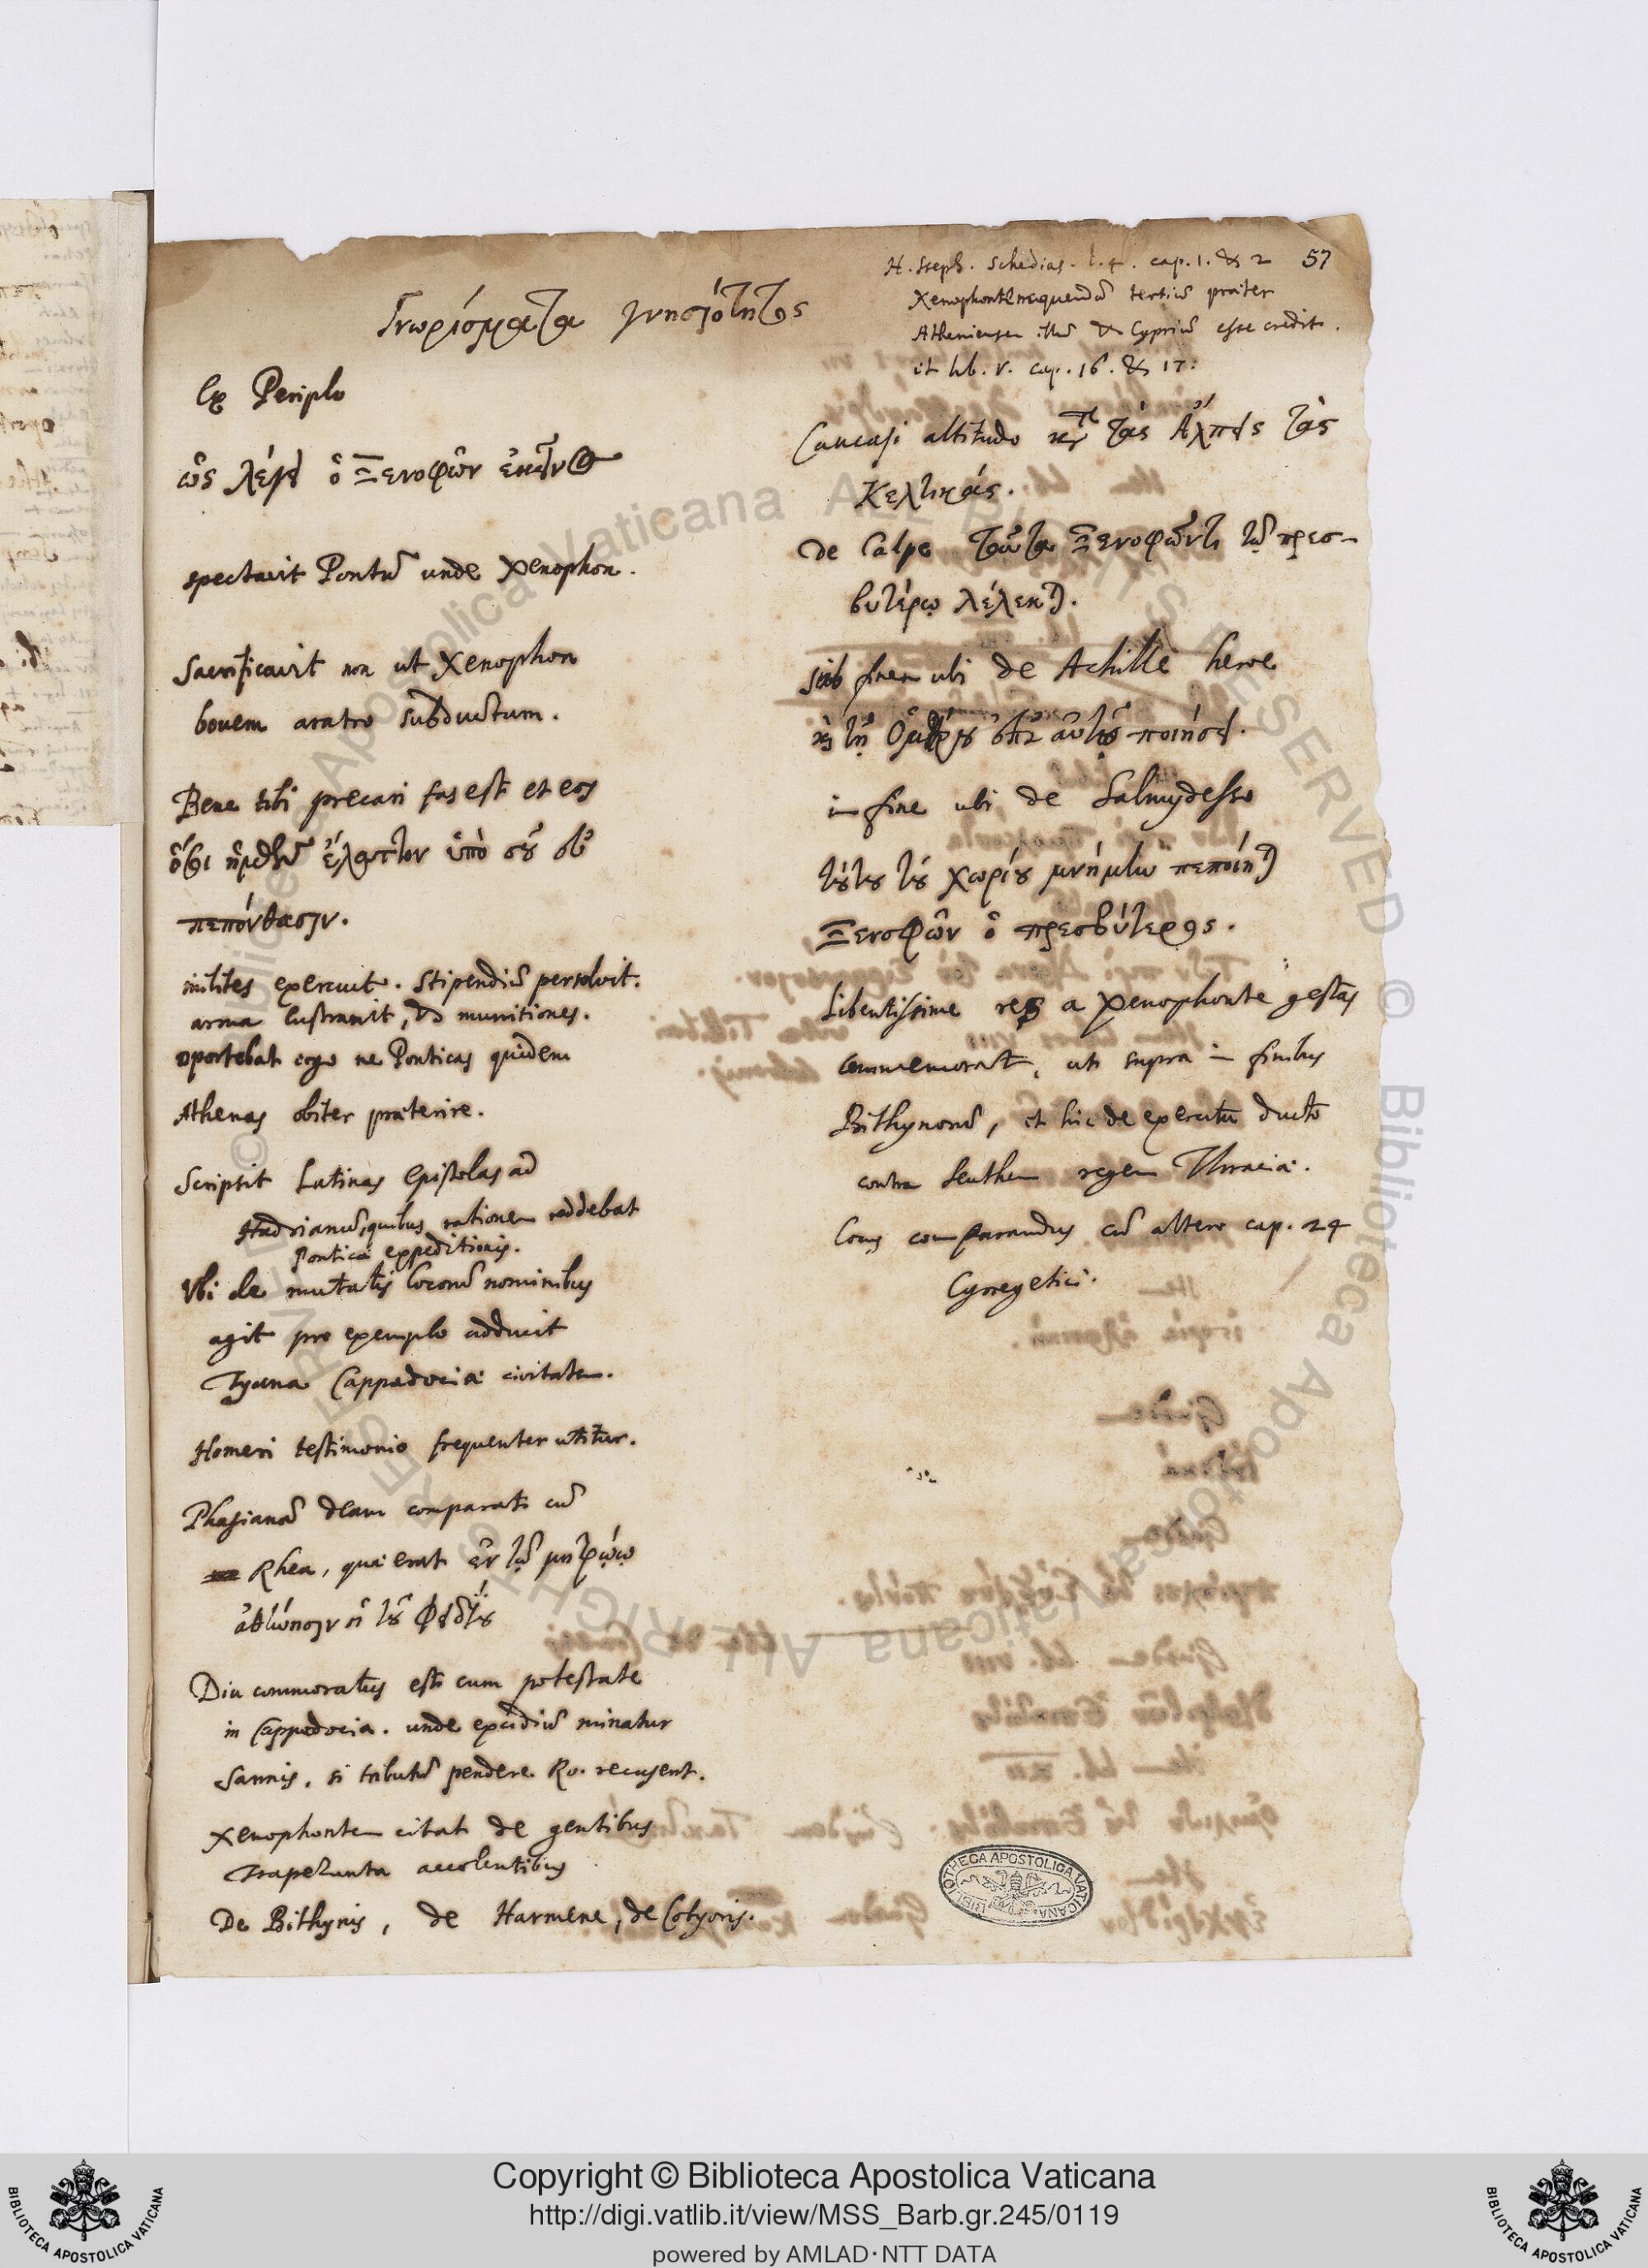 57
H. Steph. Schedias. l. 4. cap. 1. & 2
Xenophontē nequendā tertiū præter
Atheniensem illū & Cypriū esse credit.
et lib. V. cap. 16. & 17.
Γνωρίσματα γνησιότητος
Ex Periplo
ὡς λέγει ὁ Ξενοφῶν ἐκεῖνος
spectavit Pontū unde Xenophon.
Sacrificavit non ut Xenophon
bovem aratro subductum.
Bene tibi precari fas est et eos
ὅσοι ἡμῶν ἔλαττον ὑπὸ σοῦ εὖ
πεπόνθασιν.
milites exercuit. Stipendiū persolvit.
arma lustravit, & munitiones.
oportebat ergo ne Ponticas quidem
Athenas obiter præterire.
Scripsit Latinas epistolas ad
Hadrianū, quibus rationem reddebat
Ponticæ expeditionis.
Ubi de mutatis locorū nominibus
agit pro exemplo adducit
Tyana Cappadociæ civitatem.
Homeri testimonio frequenter utitur.
Phasianā deam comparat cū
Rhea, quæ erat ἐν τῷ μητρῴῳ
Ἀθήνησιν ἡ τοῦ Φειδίου
Diu commoratus est cum potestate
in Cappadocia. unde excidiū minatur
Sannis, si tributū pendere Ro. recusent.
Xenophontem citat de gentibus
Trapezunta accolentibus
De Bithynis, de Harmene, de Cotyoris.
Caucasi altitudo κατὰ τὰς Ἄλπεις τὰς
Κελτικάς.
de Calpe ταῦτα Ξενοφῶντι τῷ πρεσ-
βυτέρῳ λέλεκται.
sub finem ubi de Achille heroe
καὶ τῇ Ὁμήρου ἐπ' αὐτῷ ποιήσει.
in fine ubi de Salmydesso
τούτου τοῦ χωρίου μνήμην πεποίηται
Ξενοφῶν ὁ πρεσβύτερος.
Libentissime res a Xenophonte gestas
commemorat, uti supra in finibus
Bithynorū, et hic de exercitu ducto
contra Seuthem regem Thraciæ.
Locus comparandus cū altero cap. 24
Cynegetici.
BIBLIOTHECA APOSTOLICA VATICANA
© Biblioteca Apostolica Vaticana ALL RIGHTS RESERVED
© Biblioteca Apostolica Vaticana ALL RIGHTS RESERVED
Copyright © Biblioteca Apostolica Vaticana
http://digi.vatlib.it/view/MSS_Barb.gr.245/0119
powered by AMLAD·NTT DATA
BIBLIOTECA APOSTOLICA VATICANA
BIBLIOTECA APOSTOLICA VATICANA